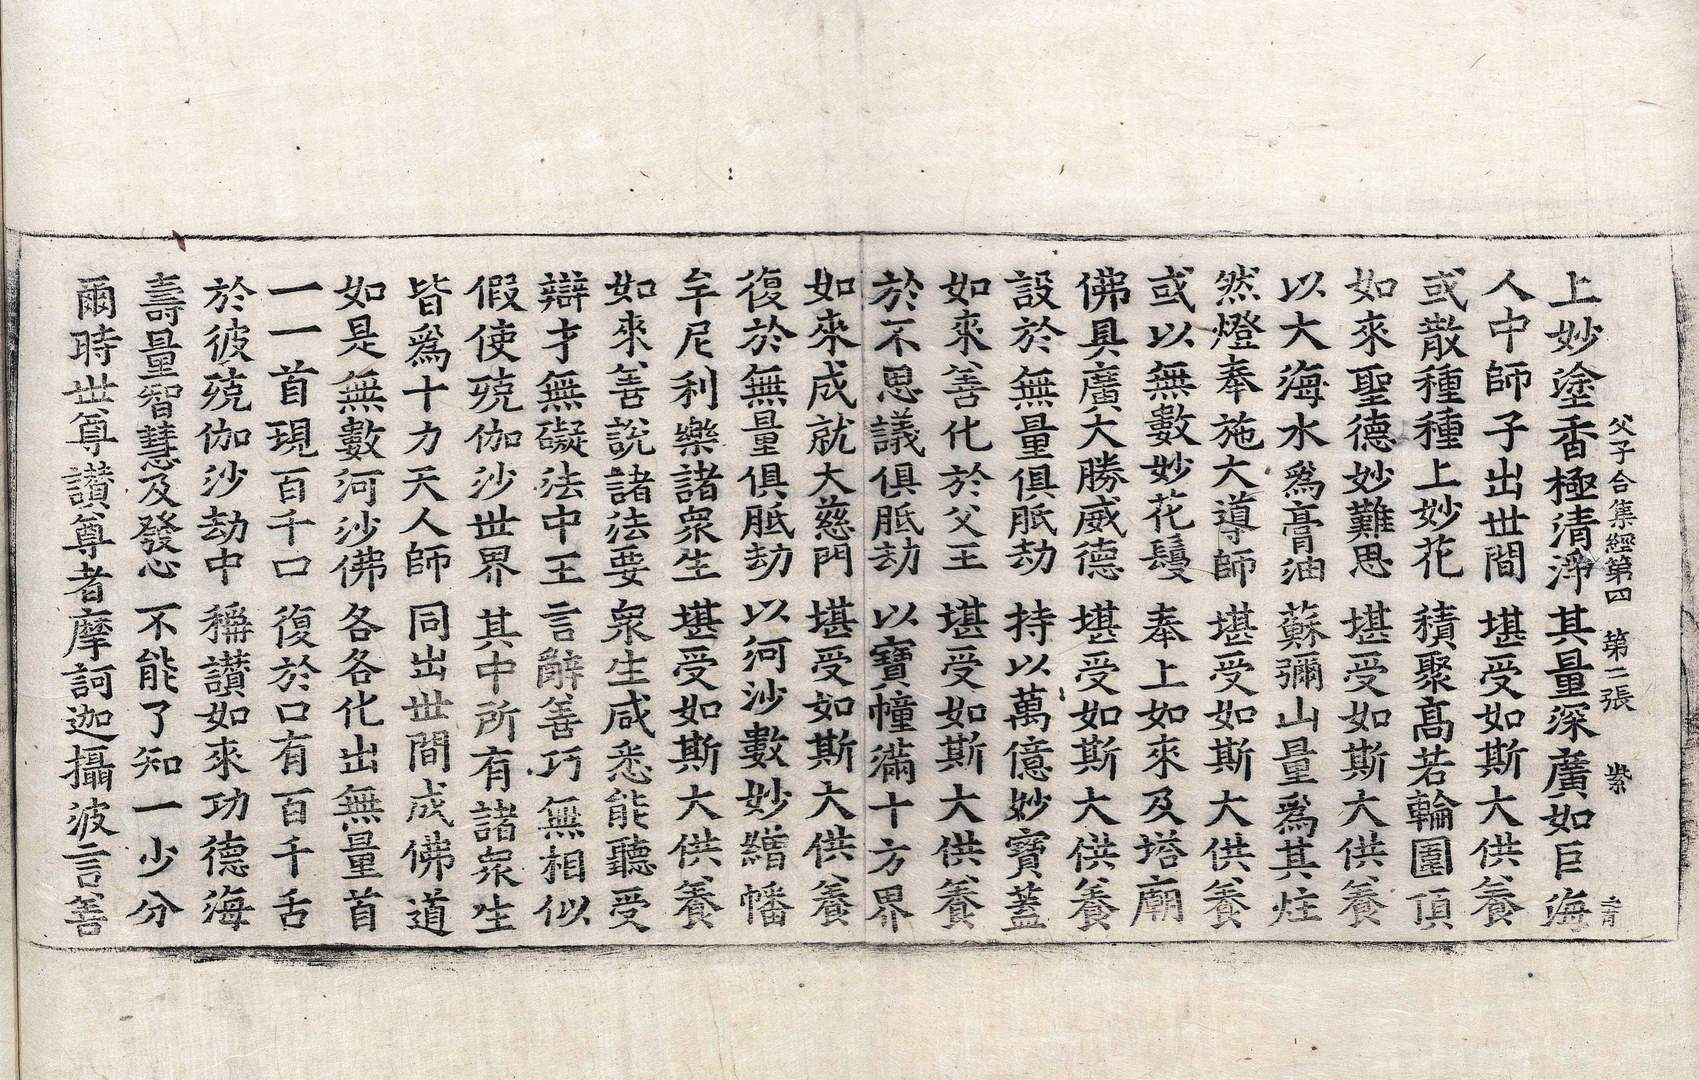 父子合集經第四 第二張 紫
上妙塗香極清淨 其量深廣如巨海
人中師子出世間 堪受如斯大供養
或散種種上妙花 積聚高若輪圍頂
如來聖德妙難思 堪受如斯大供養
以大海水爲膏油 蘇彌山量爲其炷
然燈奉施大導師 堪受如斯大供養
或以無數妙花鬘 奉上如來及塔廟
佛具廣大勝威德 堪受如斯大供養
設於無量俱胝劫 持以萬億妙寶蓋
如來善化於父王 堪受如斯大供養
於不思議俱胝劫 以寶幢滿十方界
如來成就大慈門 堪受如斯大供養
復於無量俱胝劫 以河沙數妙繒幡
牟尼利樂諸衆生 堪受如斯大供養
如來善說諸法要 衆生咸悉能聽受
辯才無礙法中王 言辭善巧無相似
假使殑伽沙世界 其中所有諸衆生
皆爲十力天人師 同出世間成佛道
如是無數河沙佛 各各化出無量首
一一首現百千口 復於口有百千舌
於彼殑伽沙劫中 稱讃如來功德海
壽量智慧及發心 不能了知一少分
爾時世尊讃尊者摩訶迦攝波言善